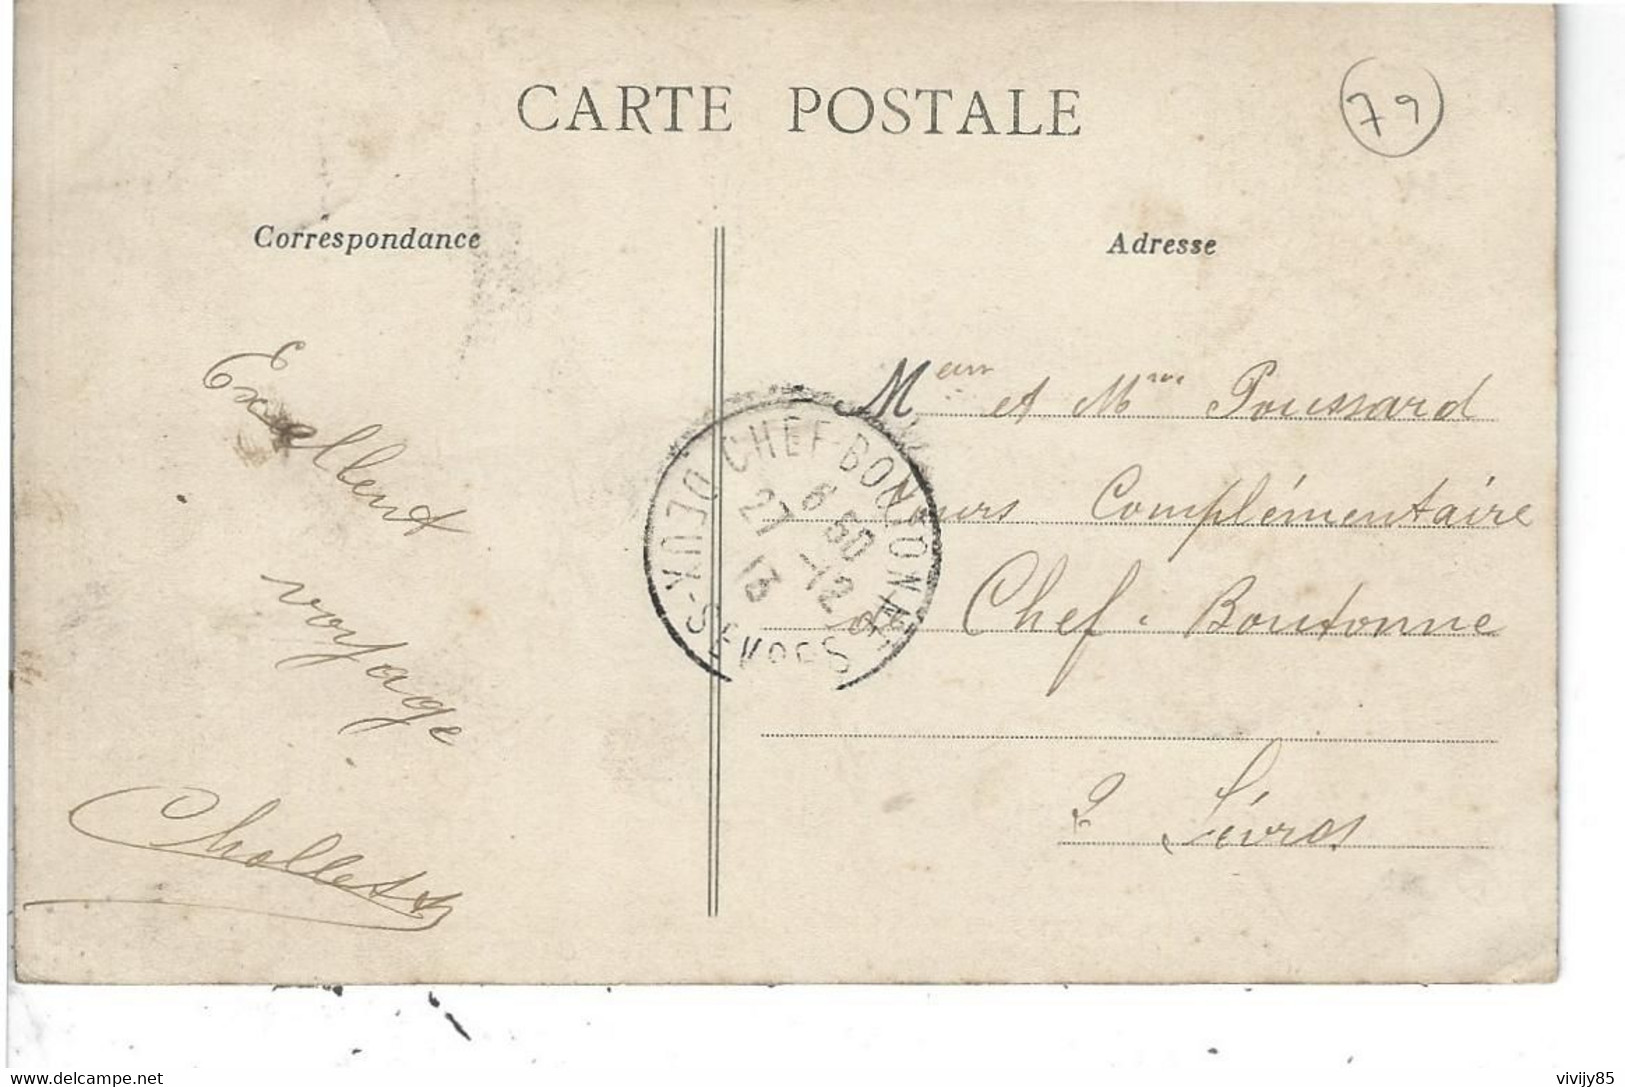 CARTE POSTALE
79
Correspondance
Adresse
Excellent
voyage
Meur et Mme Poussard
Cours Complémentaire
Chef-Boutonne
2 Sèvres
CHEF-BOUTONNE
DEUX-SEVRES
6 50
27 -12
13
www.delcampe.net
vivijy85